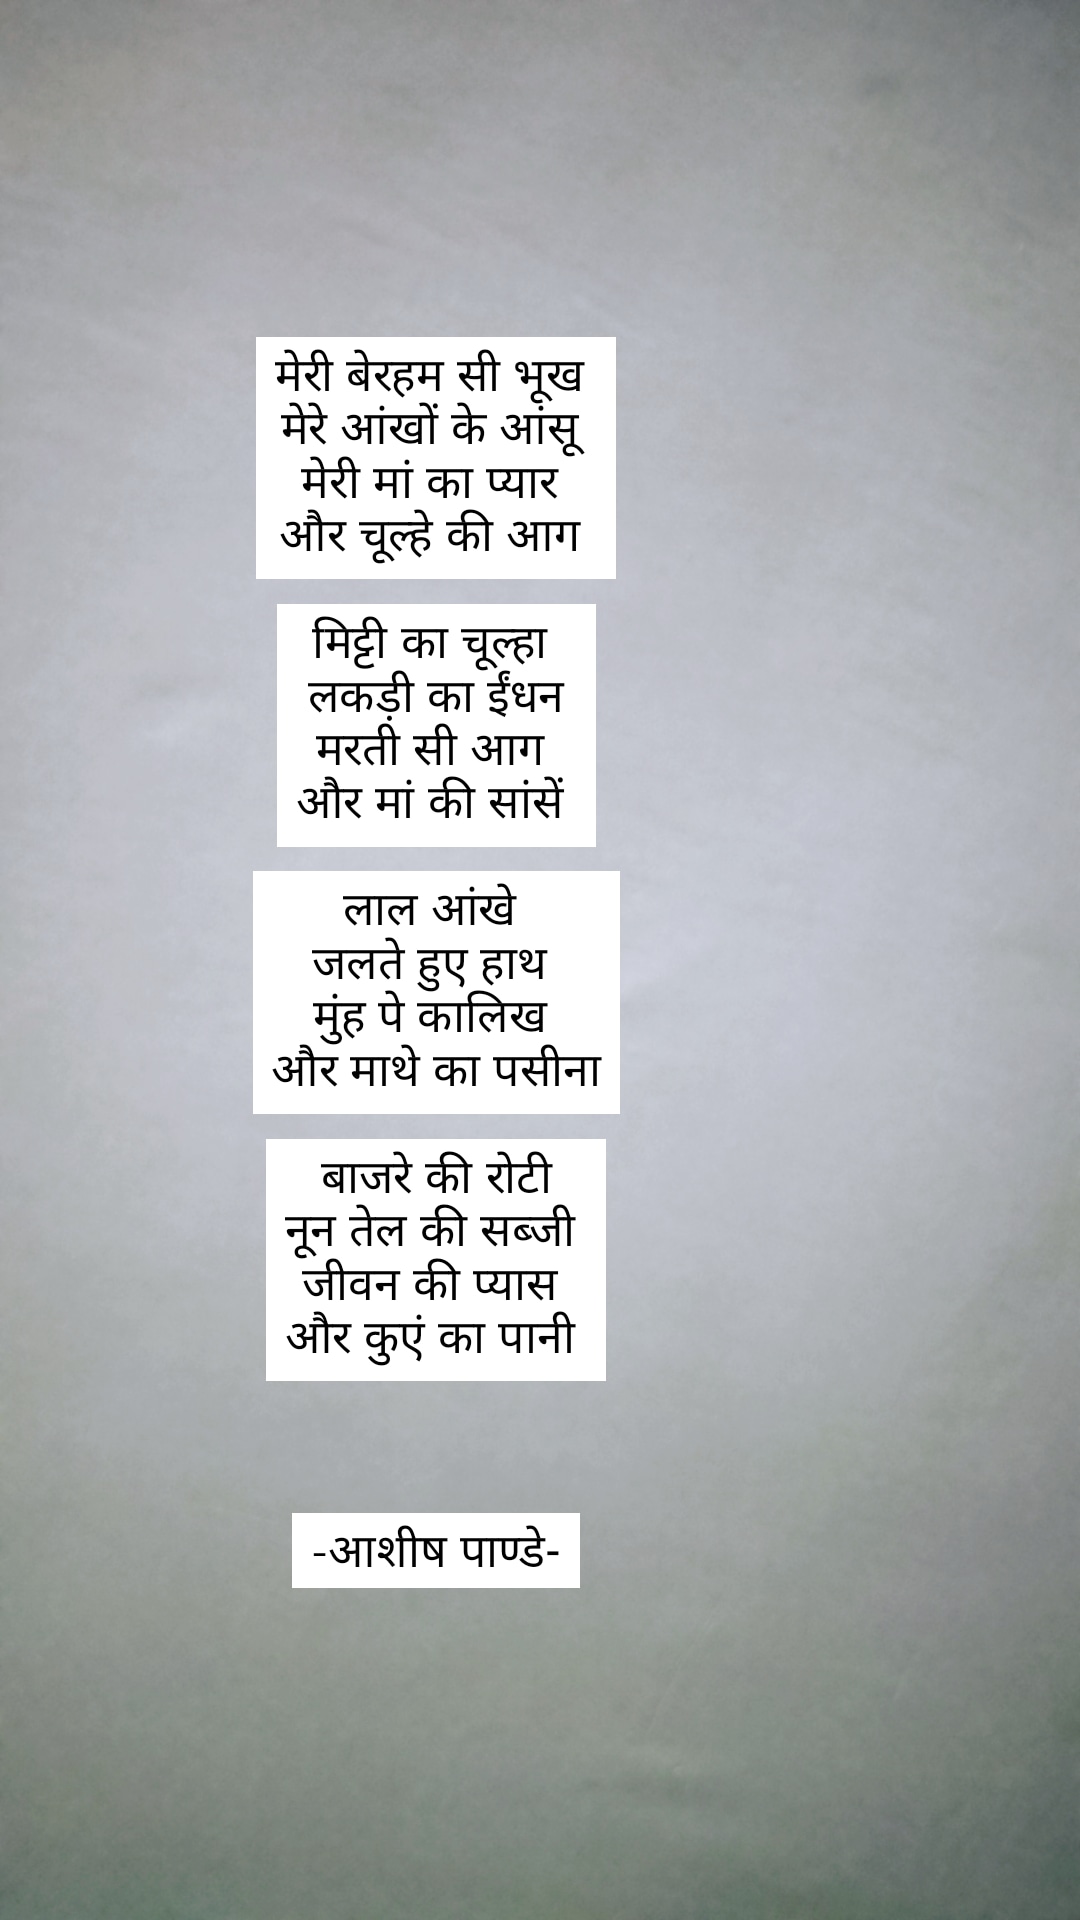 मेरी बेरहम सी भूख
मेरे आंखों के आंसू
मेरी मां का प्यार
और चूल्हे की आग
मिट्टी का चूल्हा
लकड़ी का ईंधन
मरती सी आग
और मां की सांसें
लाल आंखे
जलते हुए हाथ
मुंह पे कालिख
और माथे का पसीना
बाजरे की रोटी
नून तेल की सब्जी
जीवन की प्यास
और कुएं का पानी
-आशीष पाण्डे-